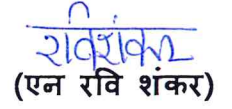 रविशंकर
(एन रवि शंकर)